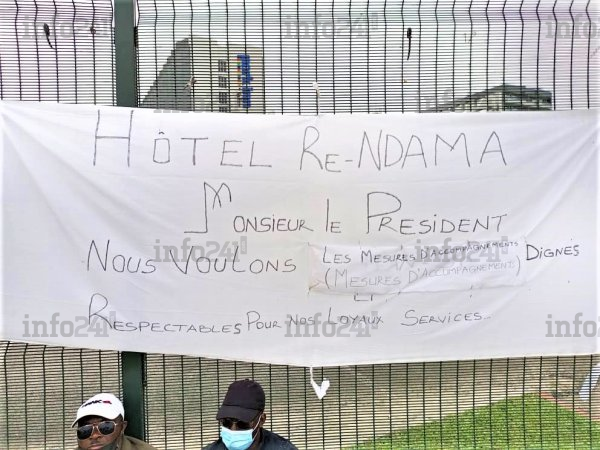 HÔTEL RE-NDAMA
MONSIEUR LE PRESIDENT
NOUS VOULONS LES MESURES D'ACCOMPAGNEMENTS DIGNES
(MESURES D'ACCOMPAGNEMENT)
ET
RESPECTABLES POUR NOS LOYAUX SERVICES..
info241